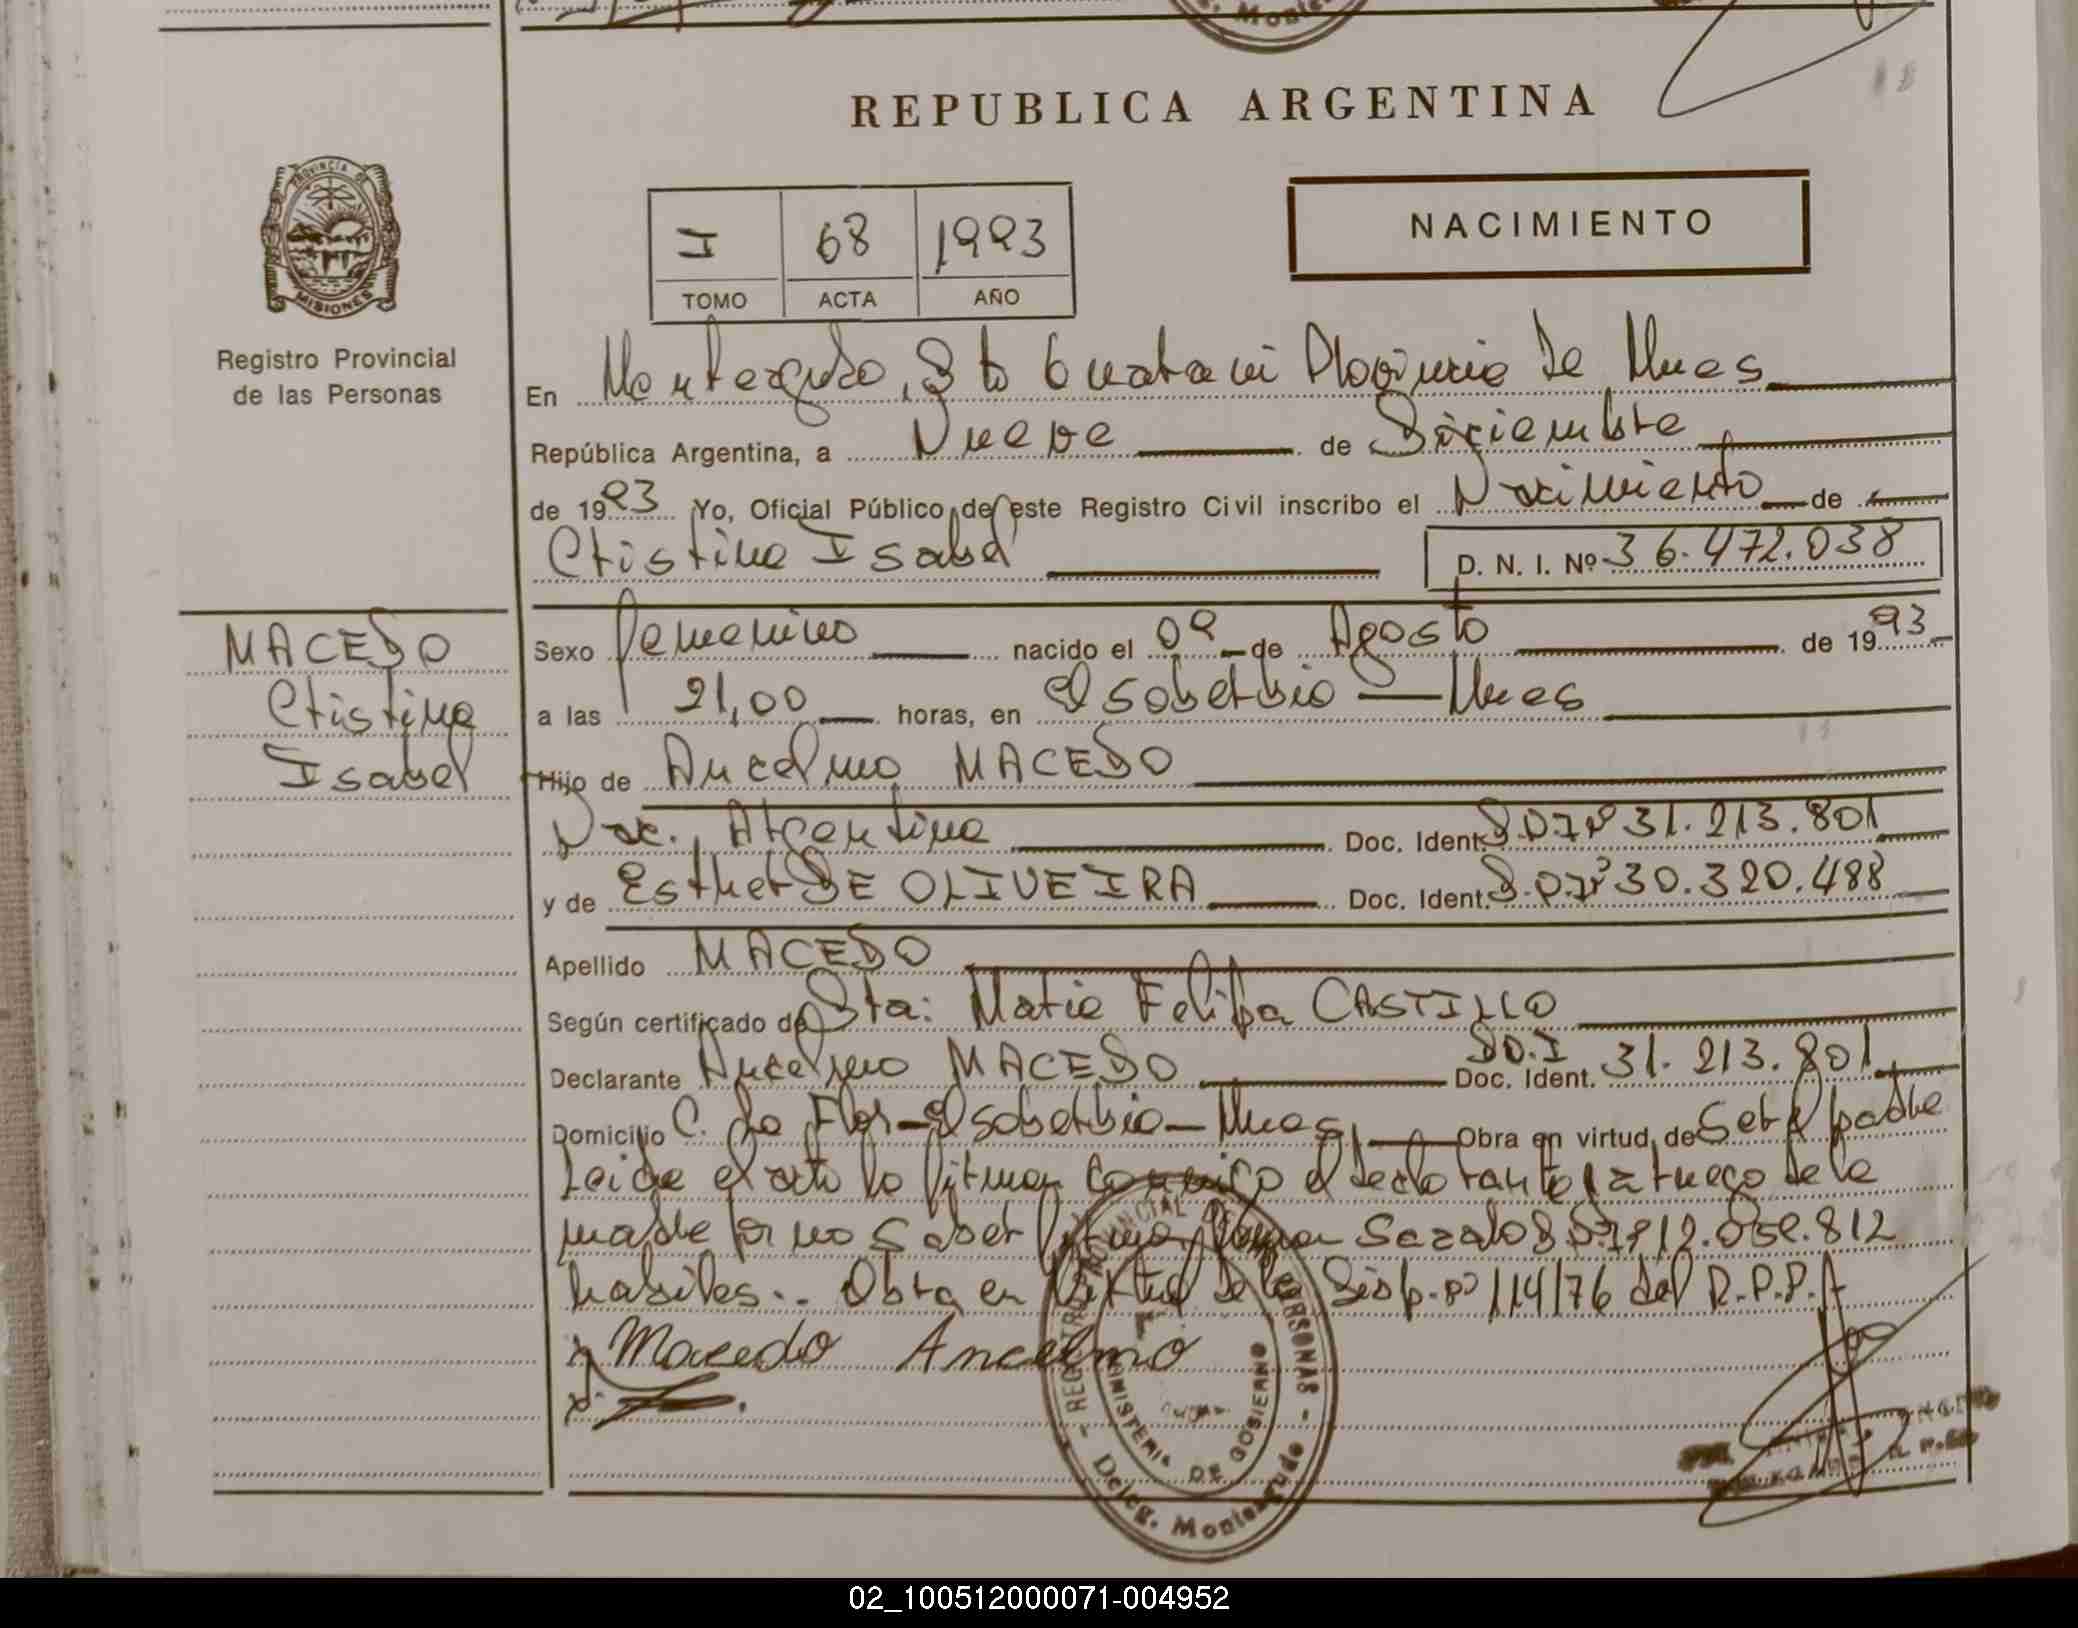 REPUBLICA ARGENTINA
NACIMIENTO
I 68 1993
TOMO ACTA AÑO
PROVINCIA DE
MISIONES
Registro Provincial
de las Personas
En Monteagudo, Dto Guarani Provincia de Mnes
República Argentina, a Nueve de Diciembre
de 1993 Yo, Oficial Público de este Registro Civil inscribo el Nacimiento de
Cristina Isabel D. N. I. Nº 36.472.038
MACEDO
Cristina
Isabel
Sexo femenino nacido el 09 de Agosto de 1993
a las 21,00 horas, en El Soberbio Mnes
Hijo de Ancelmo MACEDO
Nac. Argentina Doc. Ident. D.N.Iº 31.213.801
y de Esther DE OLIVEIRA Doc. Ident. D.N.Iº 30.320.488
Apellido MACEDO
Según certificado de Sta: Maria Felipa CASTILLO
Declarante Ancelmo MACEDO D.N.I Doc. Ident. 31.213.801
Domicilio C. La Flor - El Soberbio - Mnes Obra en virtud de Ser el padre
Leida el acta la firman conmigo el declarante a ruego de la
madre por no saber firmar 812
habiles.. Obra en virtud de la Disp. nº 114/76 del R.P.P.
Macedo Ancelmo
REGISTRO PROVINCIAL DE PERSONAS
MINISTERIO DE GOBIERNO
Deleg. Monteagudo
02_100512000071-004952